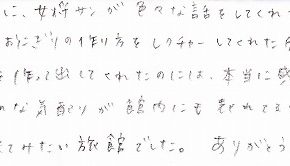 に、女将サンが色々な話をしてくれ
おにぎりの作り方をレクチャーしてくれた
を作って出してくれたのには、本当に感
な気配りが館内にも表れて
てみたい旅館でした。 ありがとう